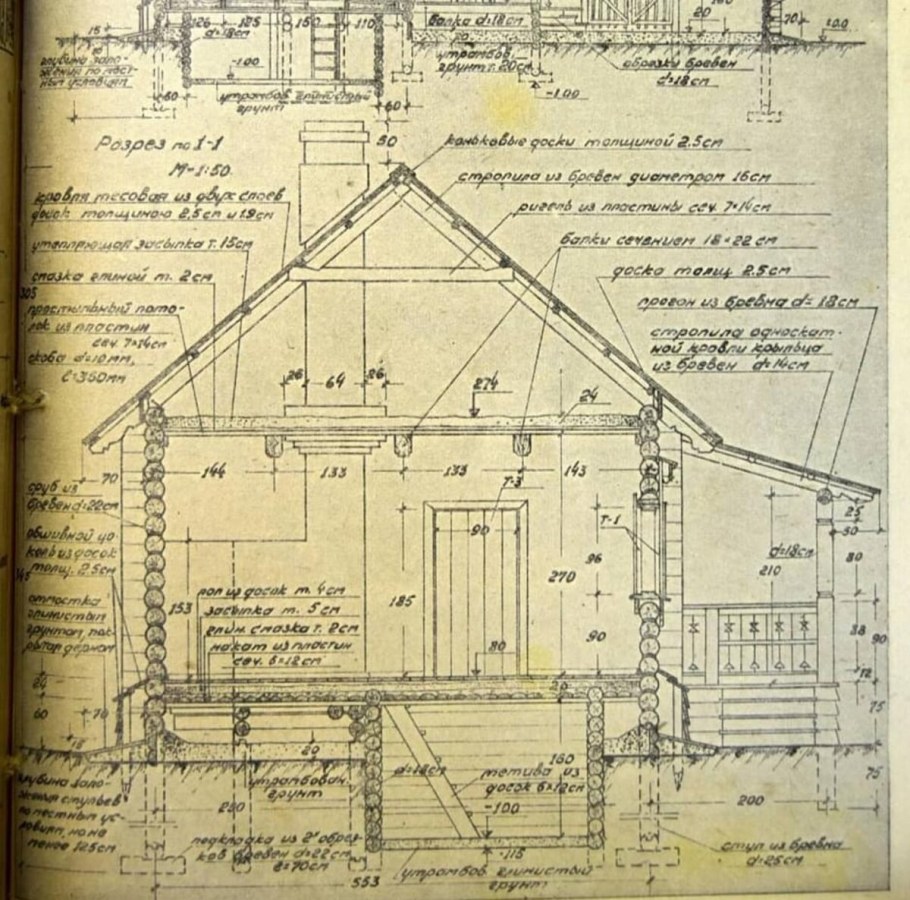 126 125 150 110
d=18см
15
-100
глубина зало-
жения по мест-
ным условиям
60
утрамбов. глинистый
грунт
60
балка d=18см
20
20
утрамбов.
грунт т. 20см
-100
обрезки бревен
d=18см
70
-100
50
Разрез по 1-1
М-1:50
коньковые доски толщиной 2.5см
стропила из бревен диаметром 16см
ригель из пластины сеч. 7×14см
балки сечением 18×22 см
доска толщ 2.5см
прогон из бревна d=18см
стропила односкат-
ной кровли крыльца
из бревен d=14см
кровля тесовая из двух слоев
досок толщиною 2,5см и 1.9см
утепляющая засыпка т. 15см
смазка глиной т. 2см
305
простильный пото-
лок из пластин
сеч. 7×14см
скоба d=10мм,
ℓ=350мм
26 64 26
274
24
70
144 133 133 143
Т-3
сруб из
бревен d=22см
обшивной цо-
коль из досок
толщ. 2.5см
145
отмостка
глинистым
грунтом, пок-
рытая дерном
90
Т-1
96
185
270
90
80
153
пол из досок т. 4см
засыпка т. 5см
глин. смазка т. 2см
накат из пластин
сеч. 6×12см
25
50
d=18см
210
80
38
90
12
75
75
64
60
70
15
20
20
глубина зало-
жения стульев
по местным ус-
ловиям, но не
менее 125см
утрамбован.
грунт
200
подкладка из 2х обрез-
ков бревен d=22см
ℓ=70см
d=18см
тетива из
досок 6×12см
160
-100
-115
утрамбов. глинистый
грунт
553
200
стул из бревна
d=25см